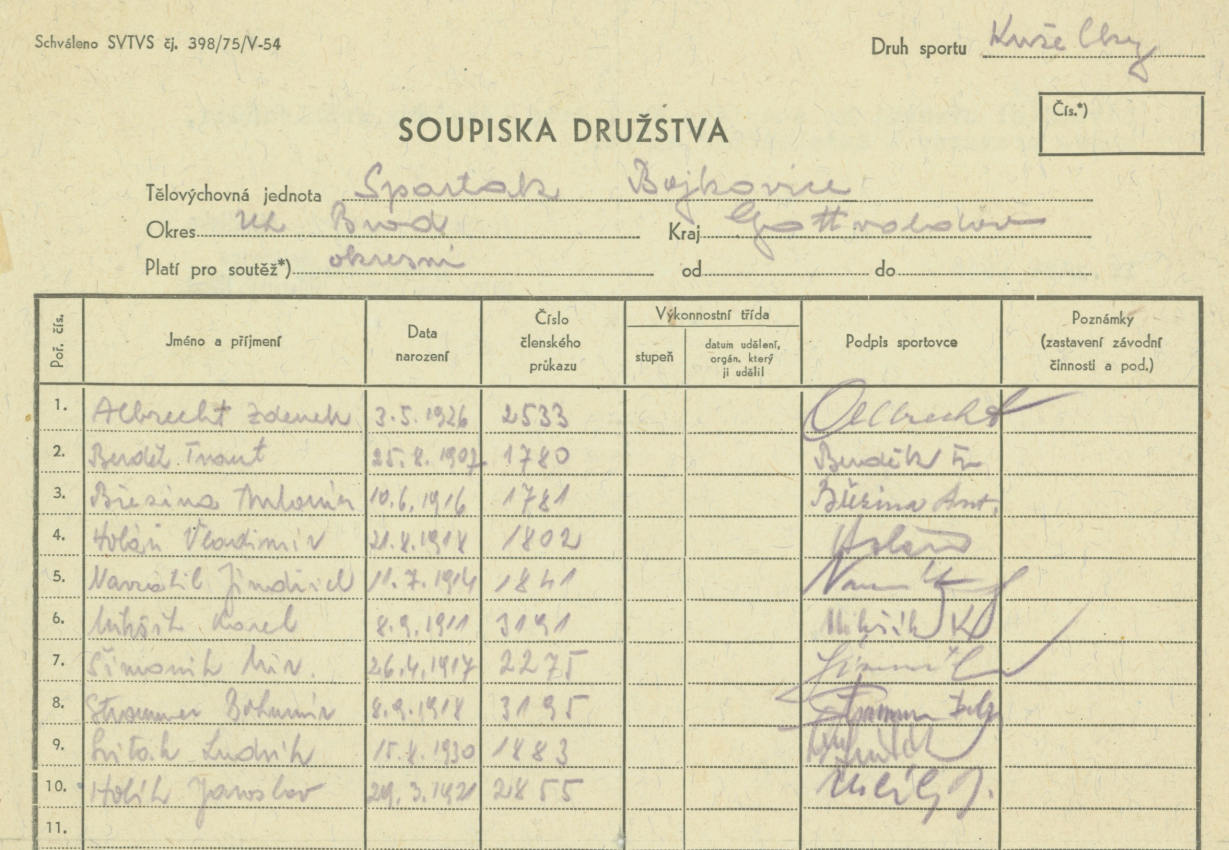 Schváleno SVTVS čj. 398/75/V-54
Druh sportu Kuželky
Čís.*)
SOUPISKA DRUŽSTVA
Tělovýchovná jednota Spartak Bojkovice
Okres Uh Brod Kraj Gottwaldov
Platí pro soutěž*) okresní od do
Poř. čís. Jméno a příjmení Data narození Číslo členského průkazu Výkonnostní třída stupeň datum udělení, orgán. který ji udělil Podpis sportovce Poznámky (zastavení závodní činnosti a pod.)
1. Albrecht Zdenek 3.5.1926 2533 Albrecht
2. 25.8.1907 1780
3. Březina Antonín 10.6.1916 1781 Březina Ant.
4. Holáň Vladimír 21.8.1918 1802
5. Navrátil Jindřich 11.7.1914 1841
6. Mikšík Karel 8.9.1911 3191 Mikšík K
7. Šimoník Mir. 26.4.1917 2275
8. Strommer Bohumír 8.9.1918 3195
9. Ludvík 15.8.1930 1883
10. Holík Jaroslav 29.3.1921 2855
11.